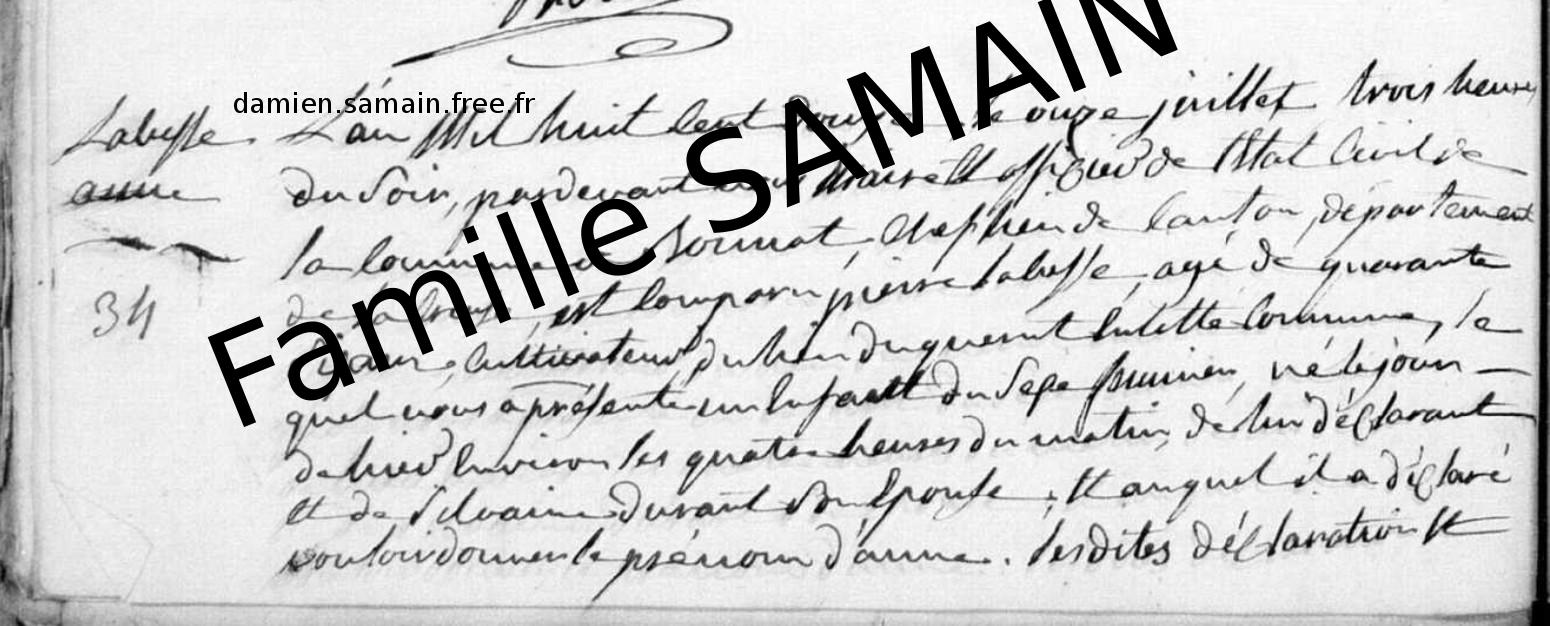 damien.samain.free.fr
Famille SAMAIN
Labesse
anne
34
L'an Mil huit Cent douze le onze juillet trois heures
du Soir, pardevant nous Maire Et officier de l'Etat Civil de
la Commune de Bonnat, Chef lieu de Canton, département
de La Creuse, est Comparu pierre Labesse, agé de quarante
cultivateur, du lieu du quesne Cudette Commune, le
quel nous a présenté un Enfant du Sexe feminin, né le jour
de hier Environ les quatre heures du matin, de lui déclarant
Et de Silvaine Durant Son Epouse, Et auquel il a déclaré
vouloir donner le prénom d'anne. les dites déclaration Et